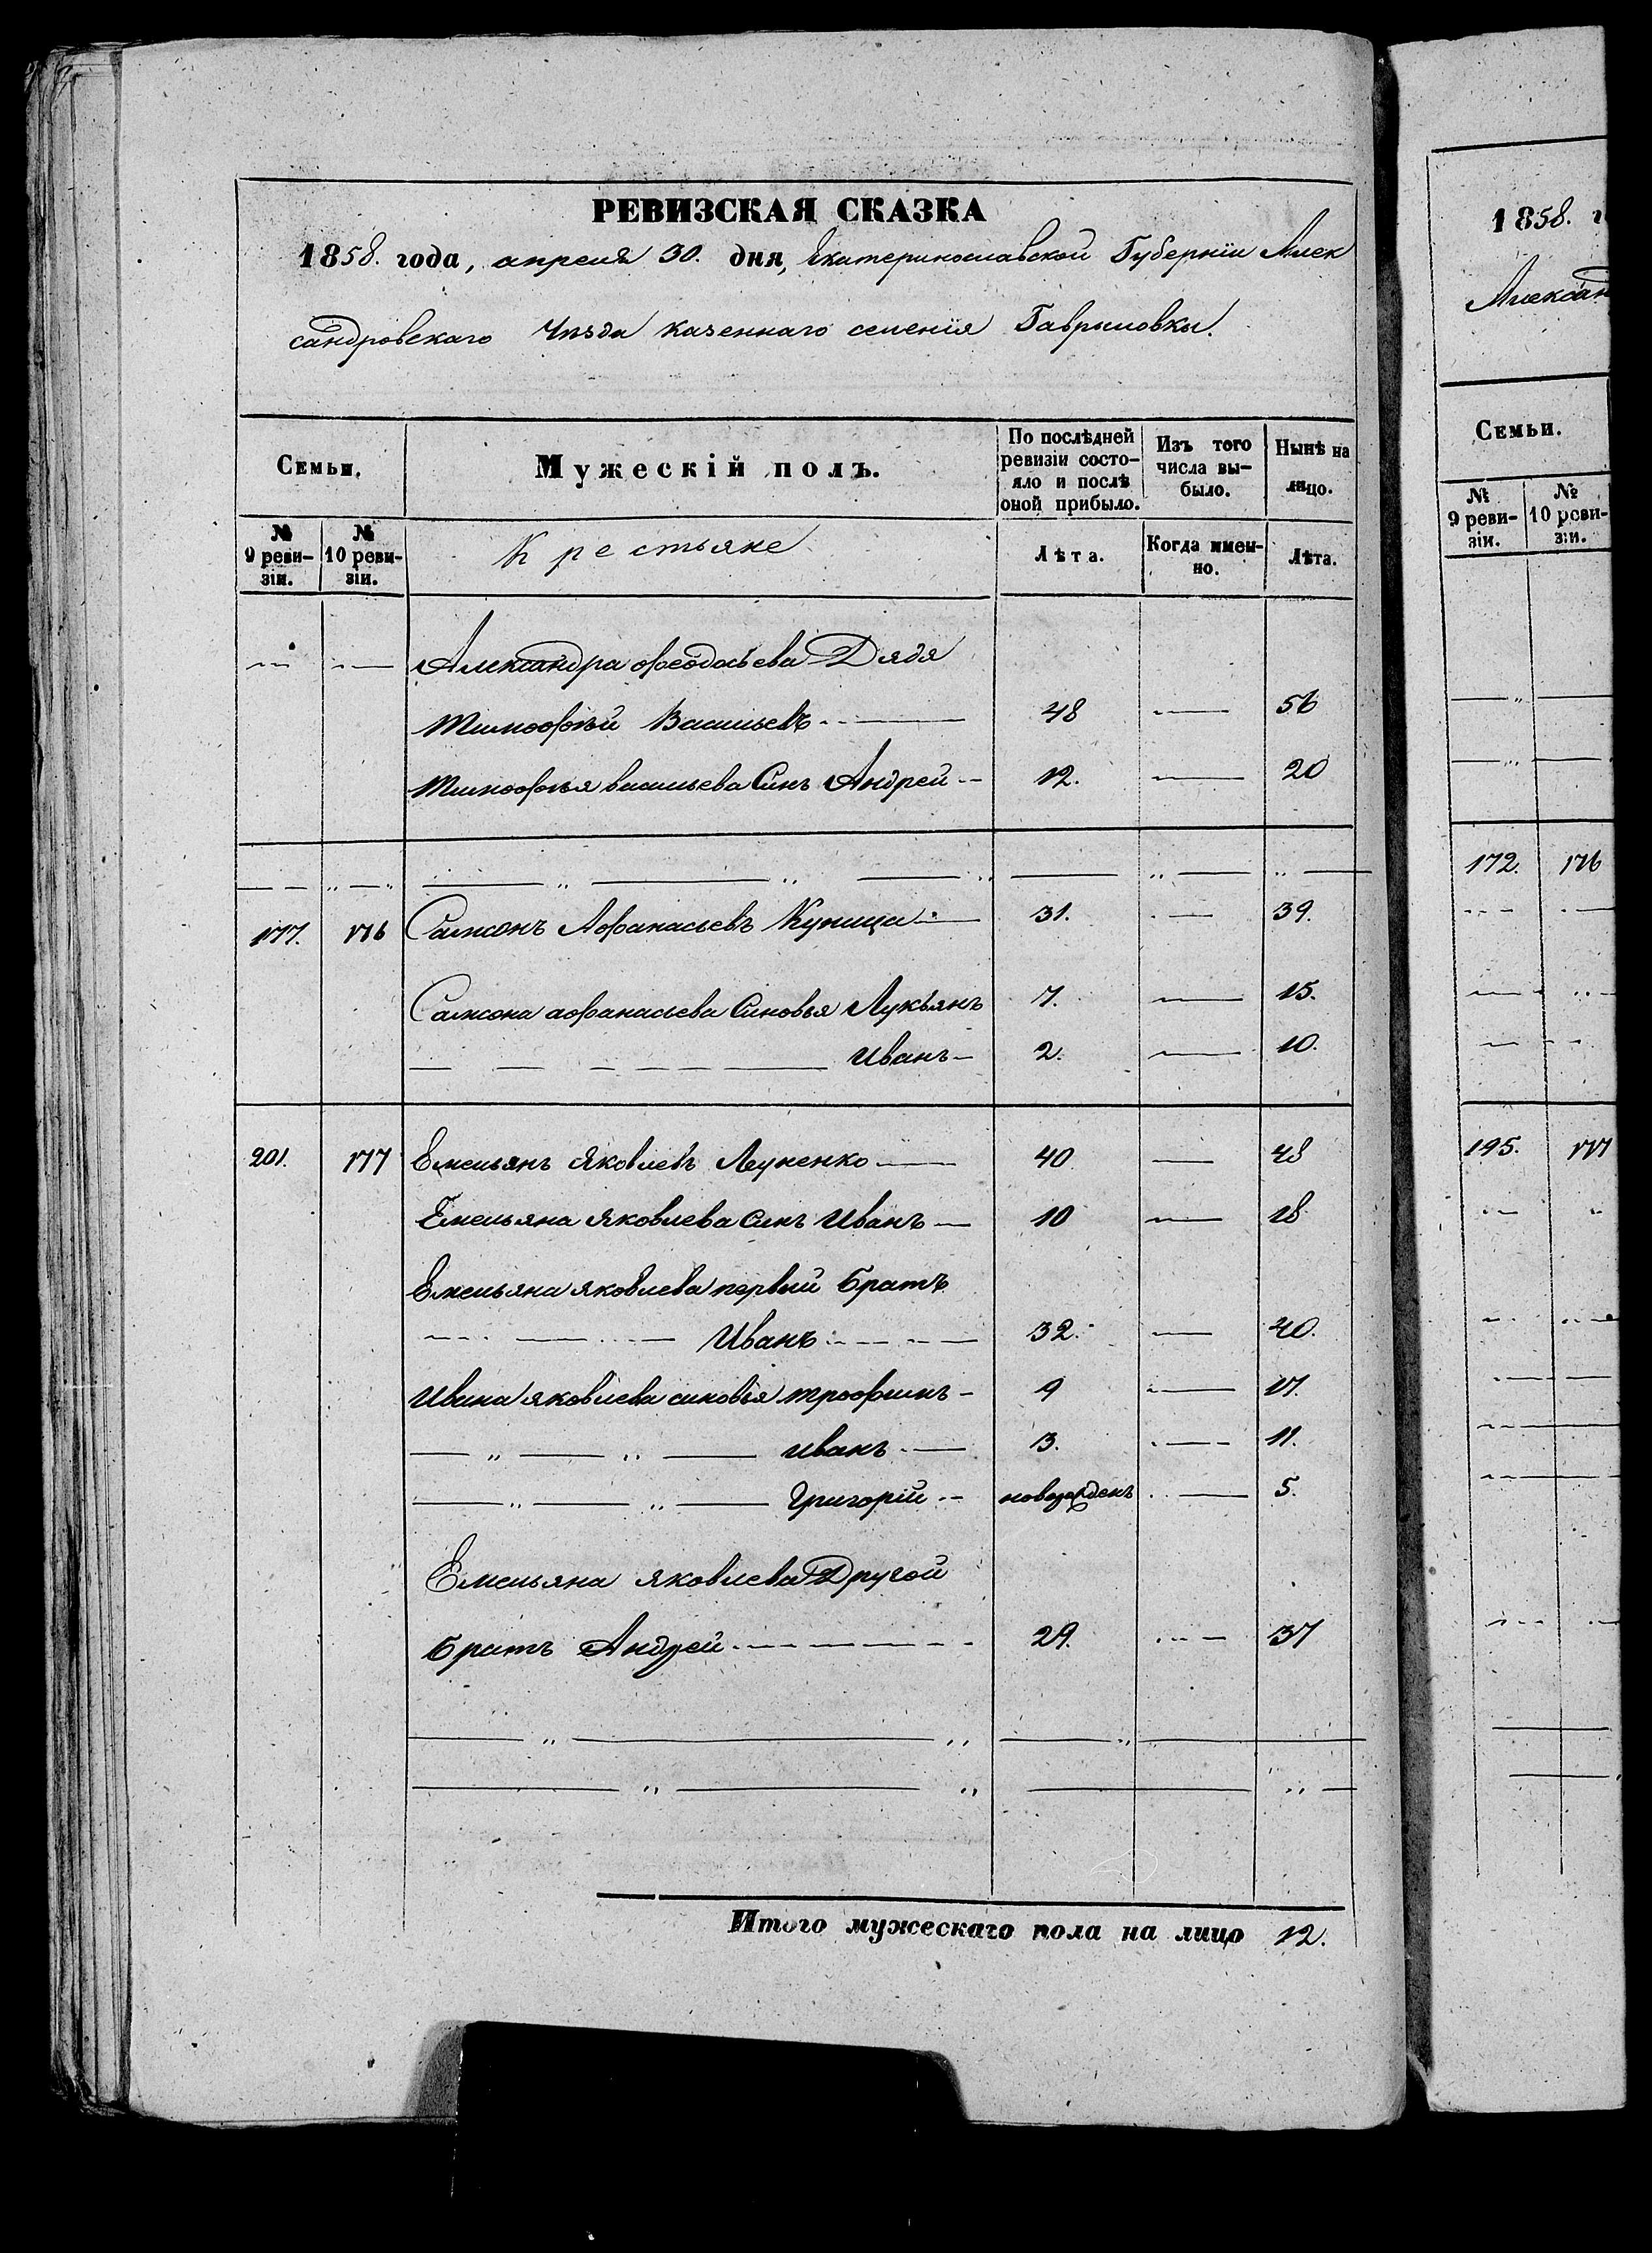 РЕВИЗСКАЯ СКАЗКА
1858. года, апреля 30. дня, Екатеринославской Губерніи Алек
сандровскаго Уѣзда казеннаго селенія Гавриловки.
Семьи.
Мужескій полъ.
По послѣдней
ревизіи состо-
яло и послѣ
оной прибыло.
Изъ того
числа вы-
было.
Нынѣ на
лицо.
№
9 реви-
зіи.
№
10 реви-
зіи.
Крестьяне
Лѣта.
Когда имен-
но.
Лѣта.
Александра Феодосьева Дядя
Тимофѣй Васильевъ 48 56
Тимофѣя васильева Синъ Андрей 12. 20
177. 176 Самсонъ Афанасьевъ Куница 31. 39.
Самсона афанасьева Синовья Лукьянъ 7. 15.
Иванъ 2. 10.
201. 177 Емельянъ Яковлевъ Луненко 40 48
Емельяна Яковлева Синъ Иванъ 10 18
Емельяна яковлева первый Братъ
Иванъ 32. 40.
Ивана яковлева синовья трофимъ 9 17.
Иванъ 3. 11.
Григорій новорожденъ 5.
Емельяна яковлева Другой
братъ Андрей 29. 37
Итого мужескаго пола на лицо 12.
1858. г
Александ
Семьи.
№
9 реви-
зіи.
№
10 реви-
зіи.
172. 176
195. 177